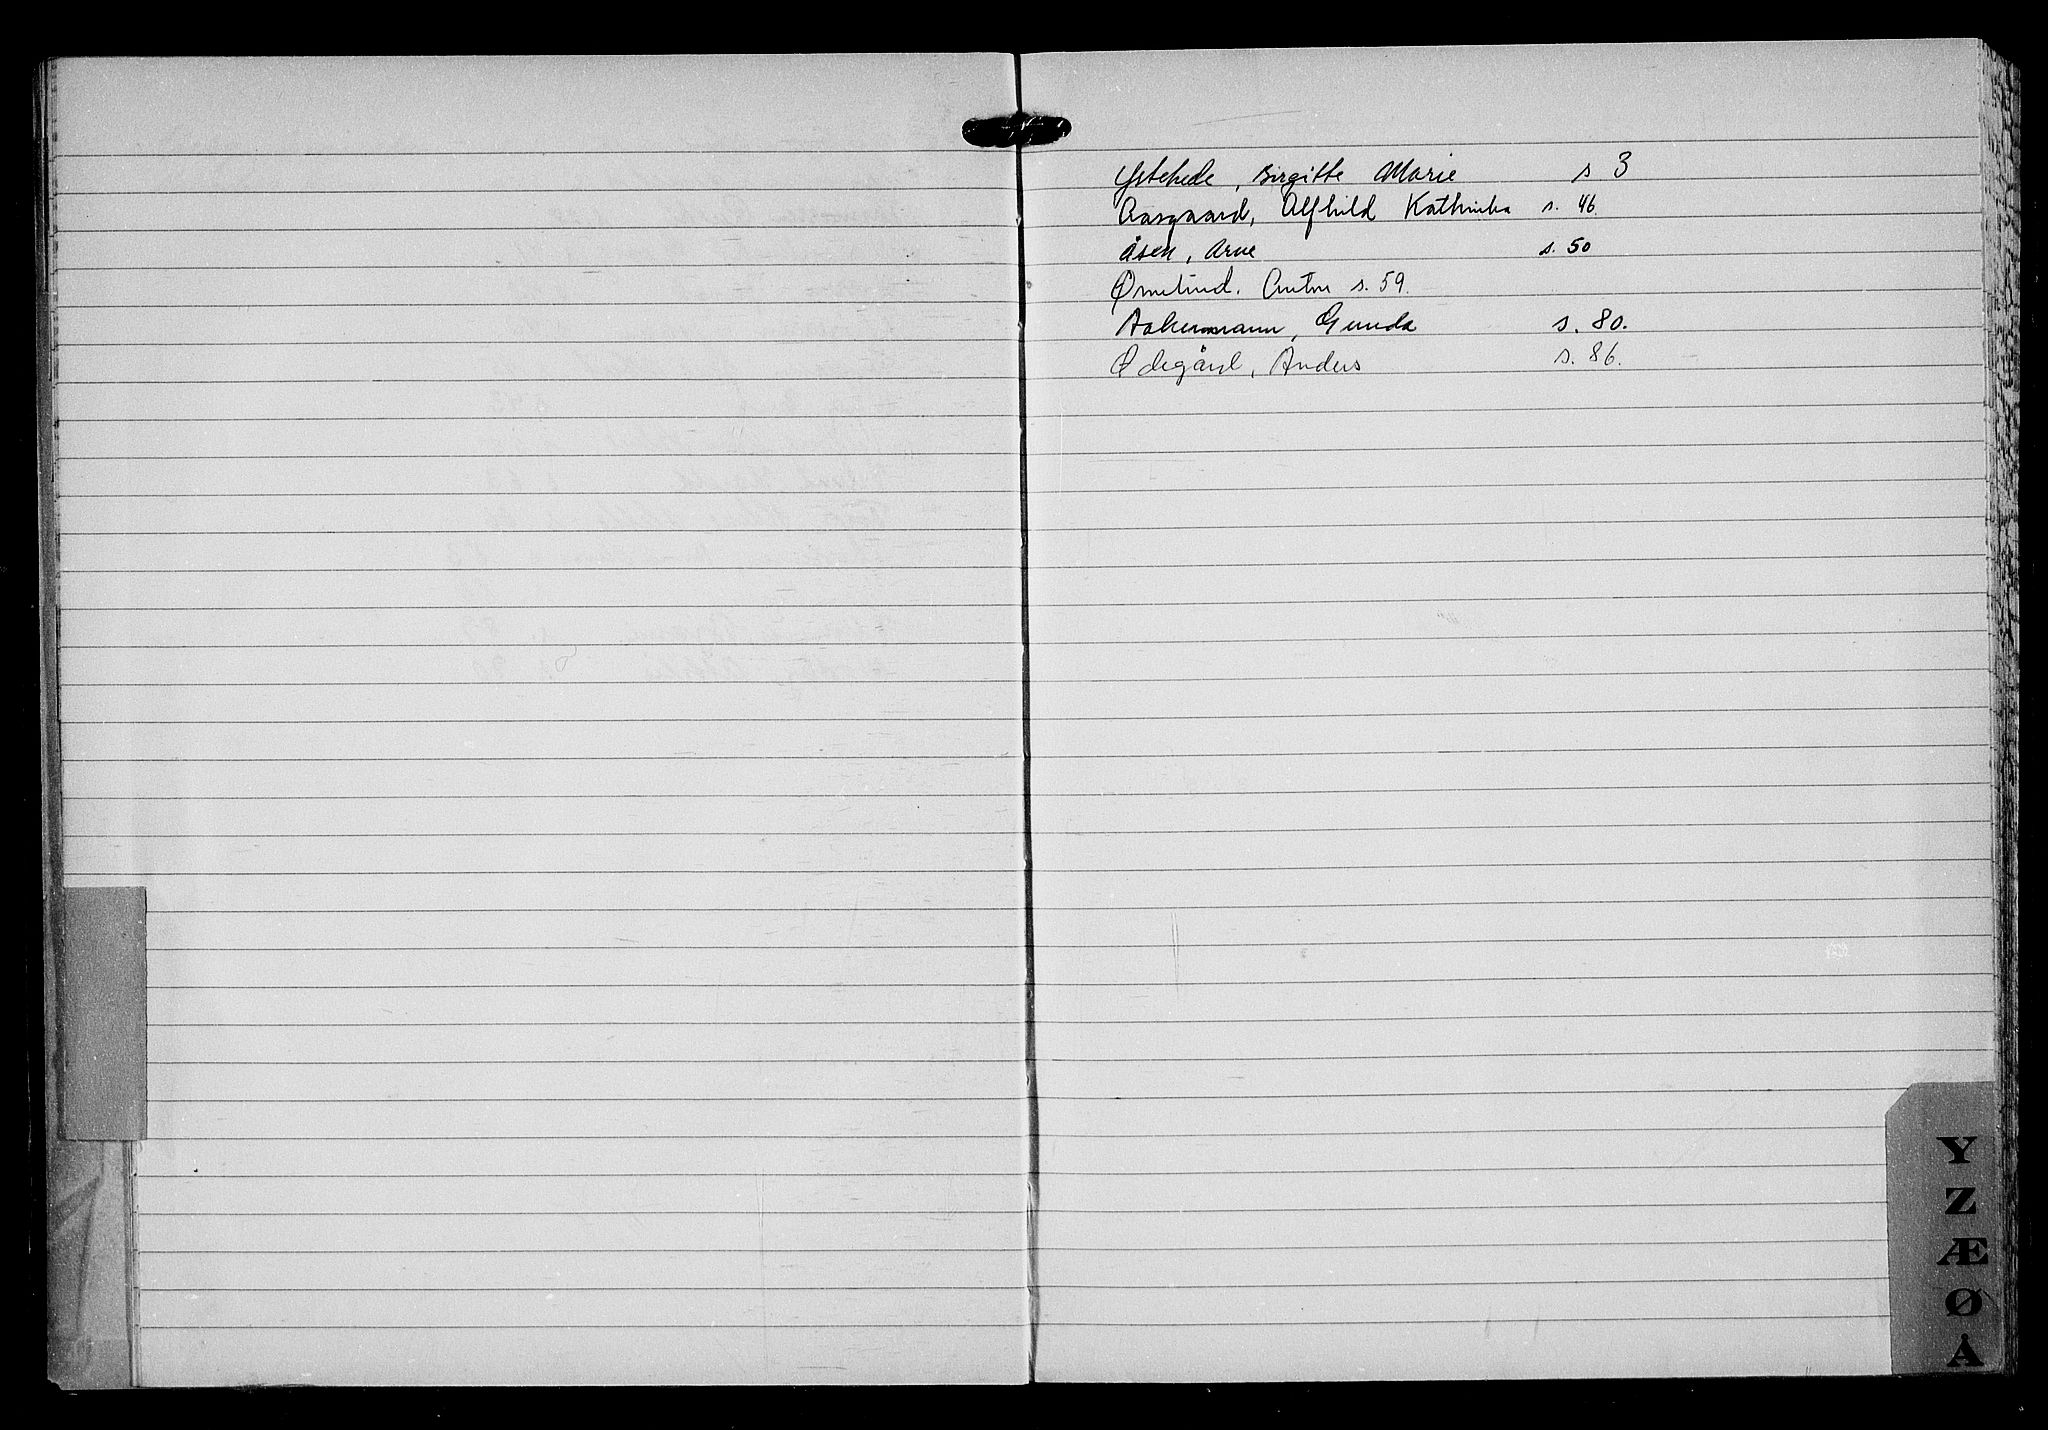 Ystehede, Birgitte Marie s 3
Aasgaard, Alfhild Kathinka s. 46.
Åsen, Arne s. 50
Ørnelund. Anton s. 59.
Aakermann, Gunda s. 80.
Ødegård, Anders s. 86.
Y
Z
Æ
Ø
Å